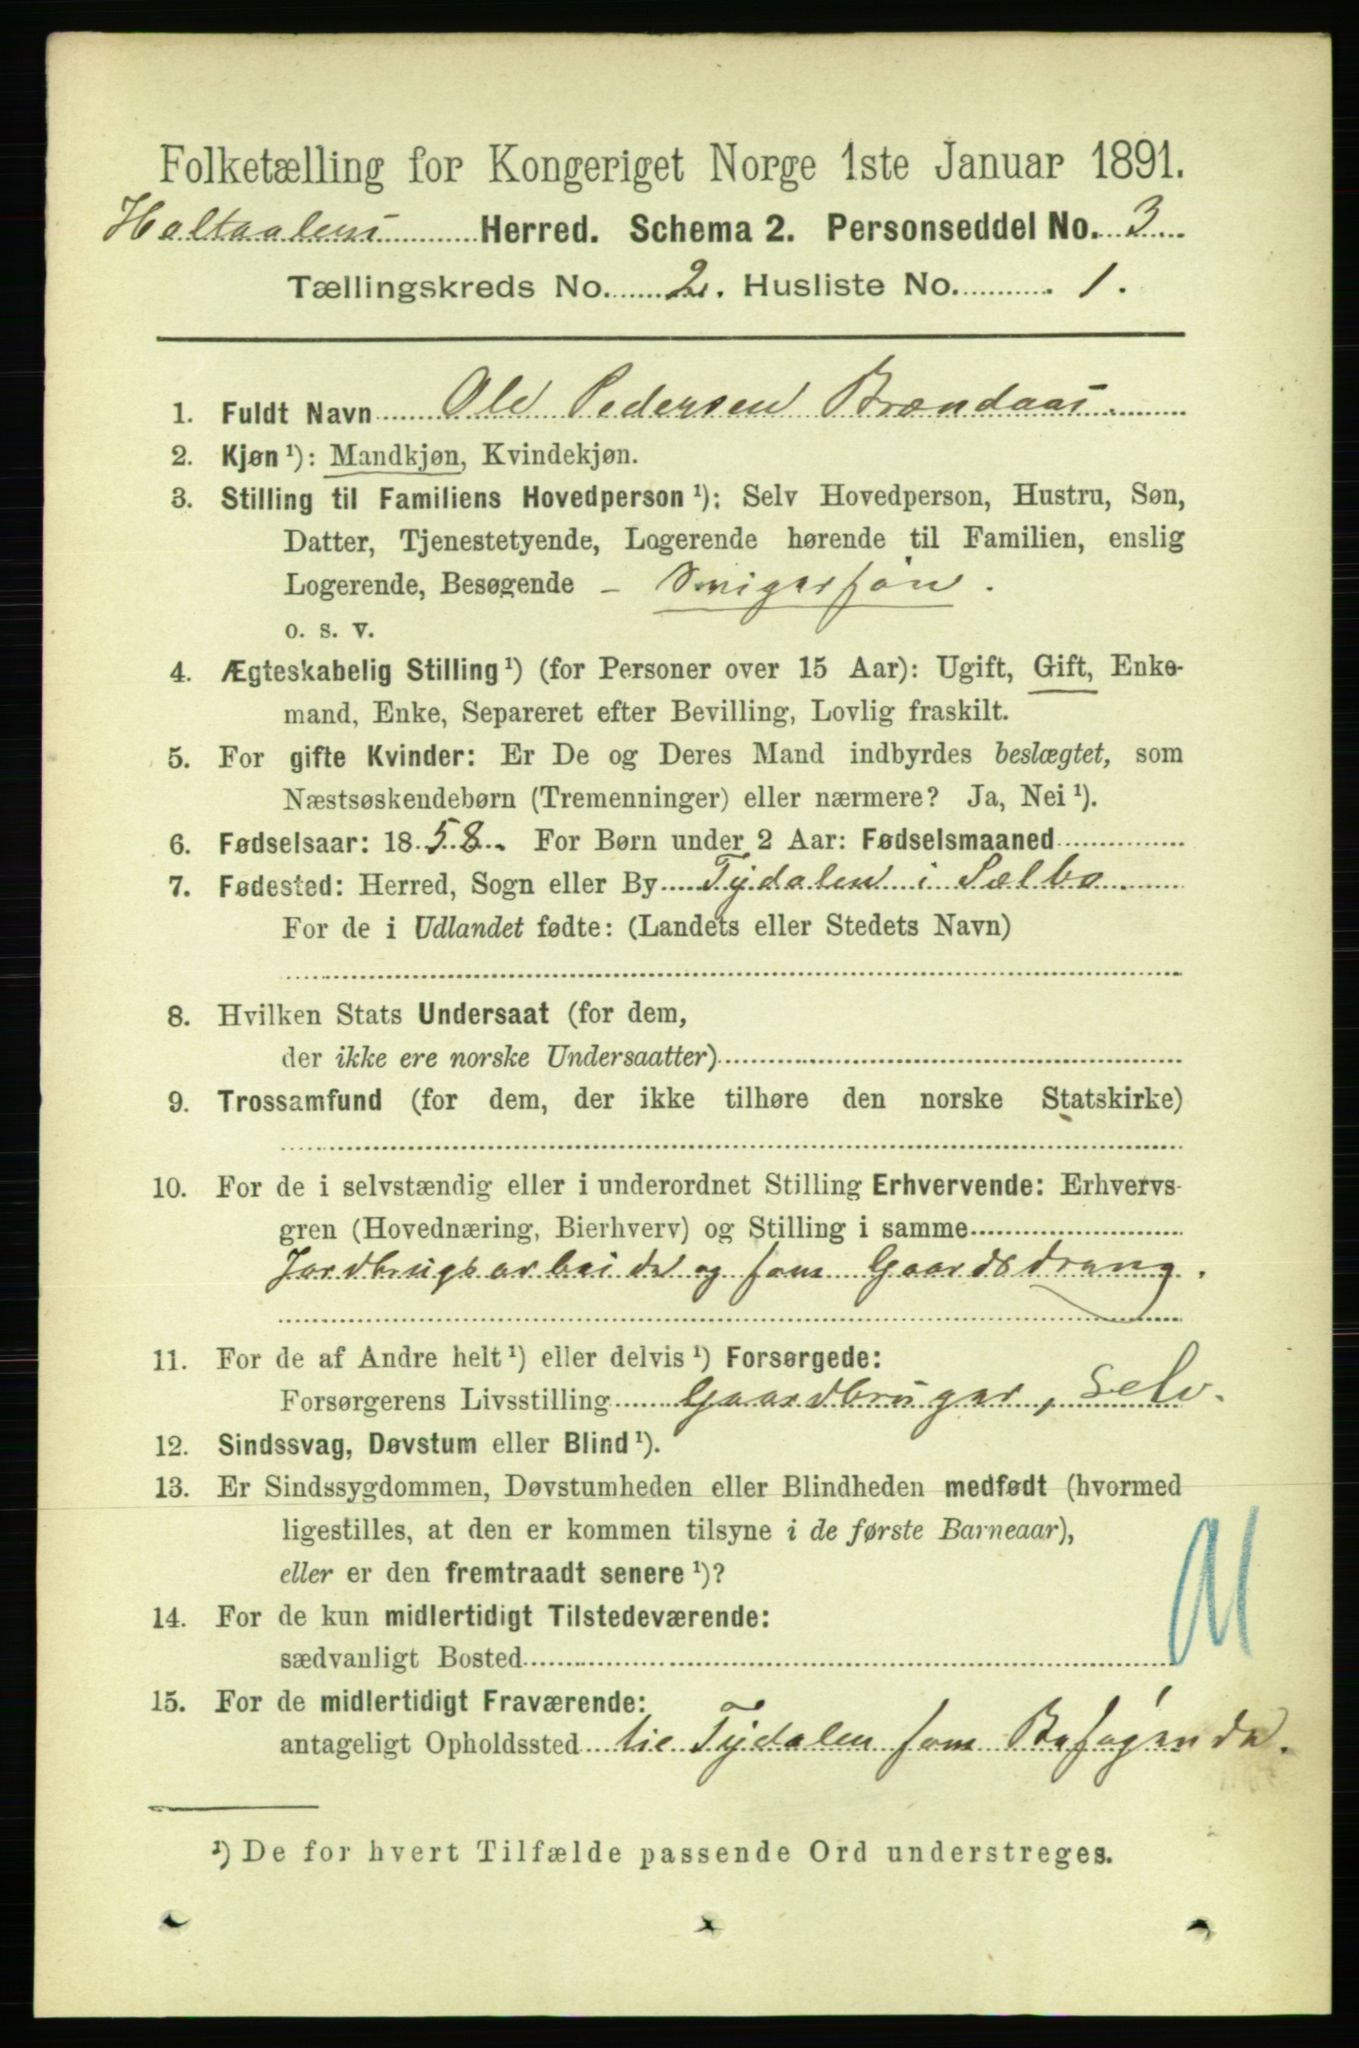 Folketælling for Kongeriget Norge 1ste Januar 1891.
Holtaalens Herred. Schema 2. Personseddel No. 3
Tællingskreds No. 2. Husliste No. 1.
1. Fuldt Navn Ole Pedersen Brændaas.
2. Kjøn ¹): Mandkjøn, Kvindekjøn.
3. Stilling til Familiens Hovedperson ¹): Selv Hovedperson, Hustru, Søn,
Datter, Tjenestetyende, Logerende hørende til Familien, enslig
Logerende, Besøgende – Svigersøn.
o. s. v.
4. Ægteskabelig Stilling ¹) (for Personer over 15 Aar): Ugift, Gift, Enke-
mand, Enke, Separeret efter Bevilling, Lovlig fraskilt.
5. For gifte Kvinder: Er De og Deres Mand indbyrdes beslægtet, som
Næstsøskendebørn (Tremenninger) eller nærmere? Ja, Nei ¹).
6. Fødselsaar: 1858. For Børn under 2 Aar: Fødselsmaaned
7. Fødested: Herred, Sogn eller By Tydalen i Sælbo.
For de i Udlandet fødte: (Landets eller Stedets Navn)
8. Hvilken Stats Undersaat (for dem,
der ikke ere norske Undersaatter)
9. Trossamfund (for dem, der ikke tilhøre den norske Statskirke)
10. For de i selvstændig eller i underordnet Stilling Erhvervende: Erhvervs-
gren (Hovednæring, Bierhverv) og Stilling i samme
Jordbrugsarbeide og som Gaardsdreng.
11. For de af Andre helt ¹) eller delvis ¹) Forsørgede:
Forsørgerens Livsstilling Gaardbruger, selv.
12. Sindssvag, Døvstum eller Blind ¹).
13. Er Sindssygdommen, Døvstumheden eller Blindheden medfødt (hvormed
ligestilles, at den er kommen tilsyne i de første Barneaar),
eller er den fremtraadt senere ¹)?
14. For de kun midlertidigt Tilstedeværende:
sædvanligt Bosted
15. For de midlertidigt Fraværende:
antageligt Opholdssted til Tydalen som Besøgende.
¹) De for hvert Tilfælde passende Ord understreges.